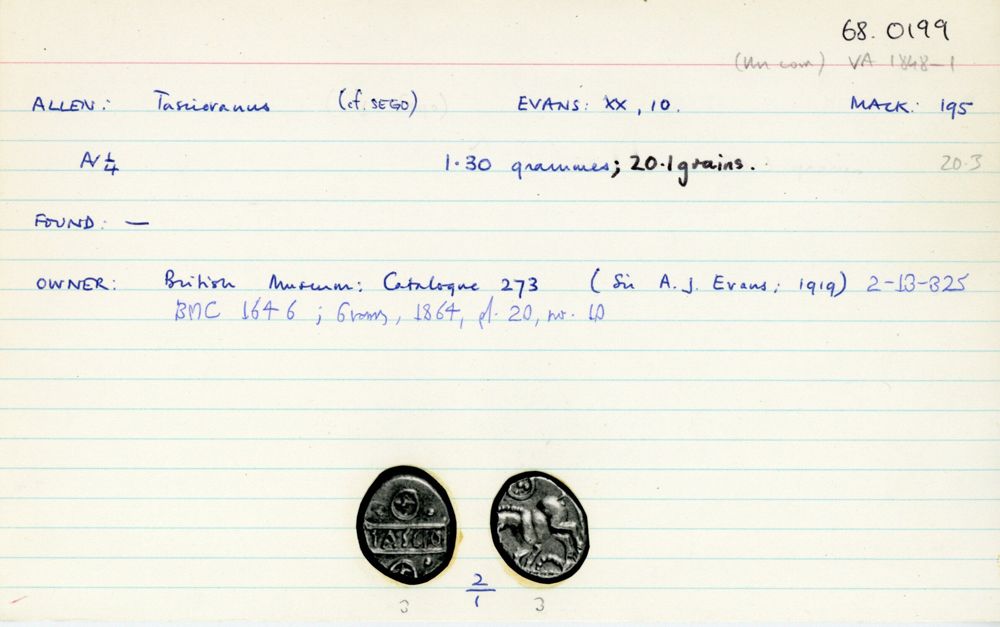 68.0199
(Un com) VA 1848-1
ALLEN: Tasciovanus (cf. SEGO) EVANS: XX, 10. MACK: 195
AV 1/4 1.30 grammes; 20.1 grains. 20.3
FOUND: —
OWNER: British Museum: Catalogue 273 (Sir A. J. Evans; 1919) 2-13-325
BMC 1646; Evans, 1864, pl. 20, no. 10
TASCIO
2/1
3 3